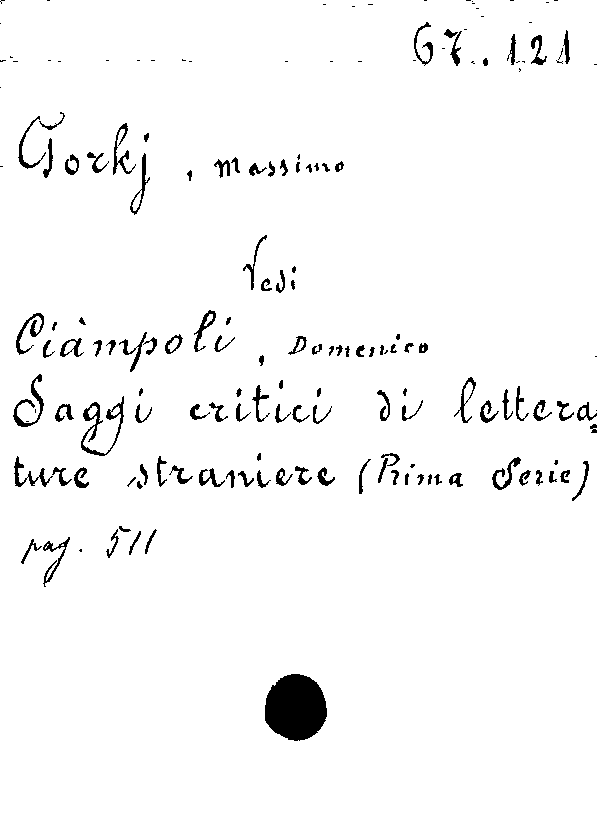 67.121
Gorkj, Massimo
Vedi
Ciàmpoli, Domenico
Saggi critici di lettera=
ture straniere (Prima Serie)
pag. 511